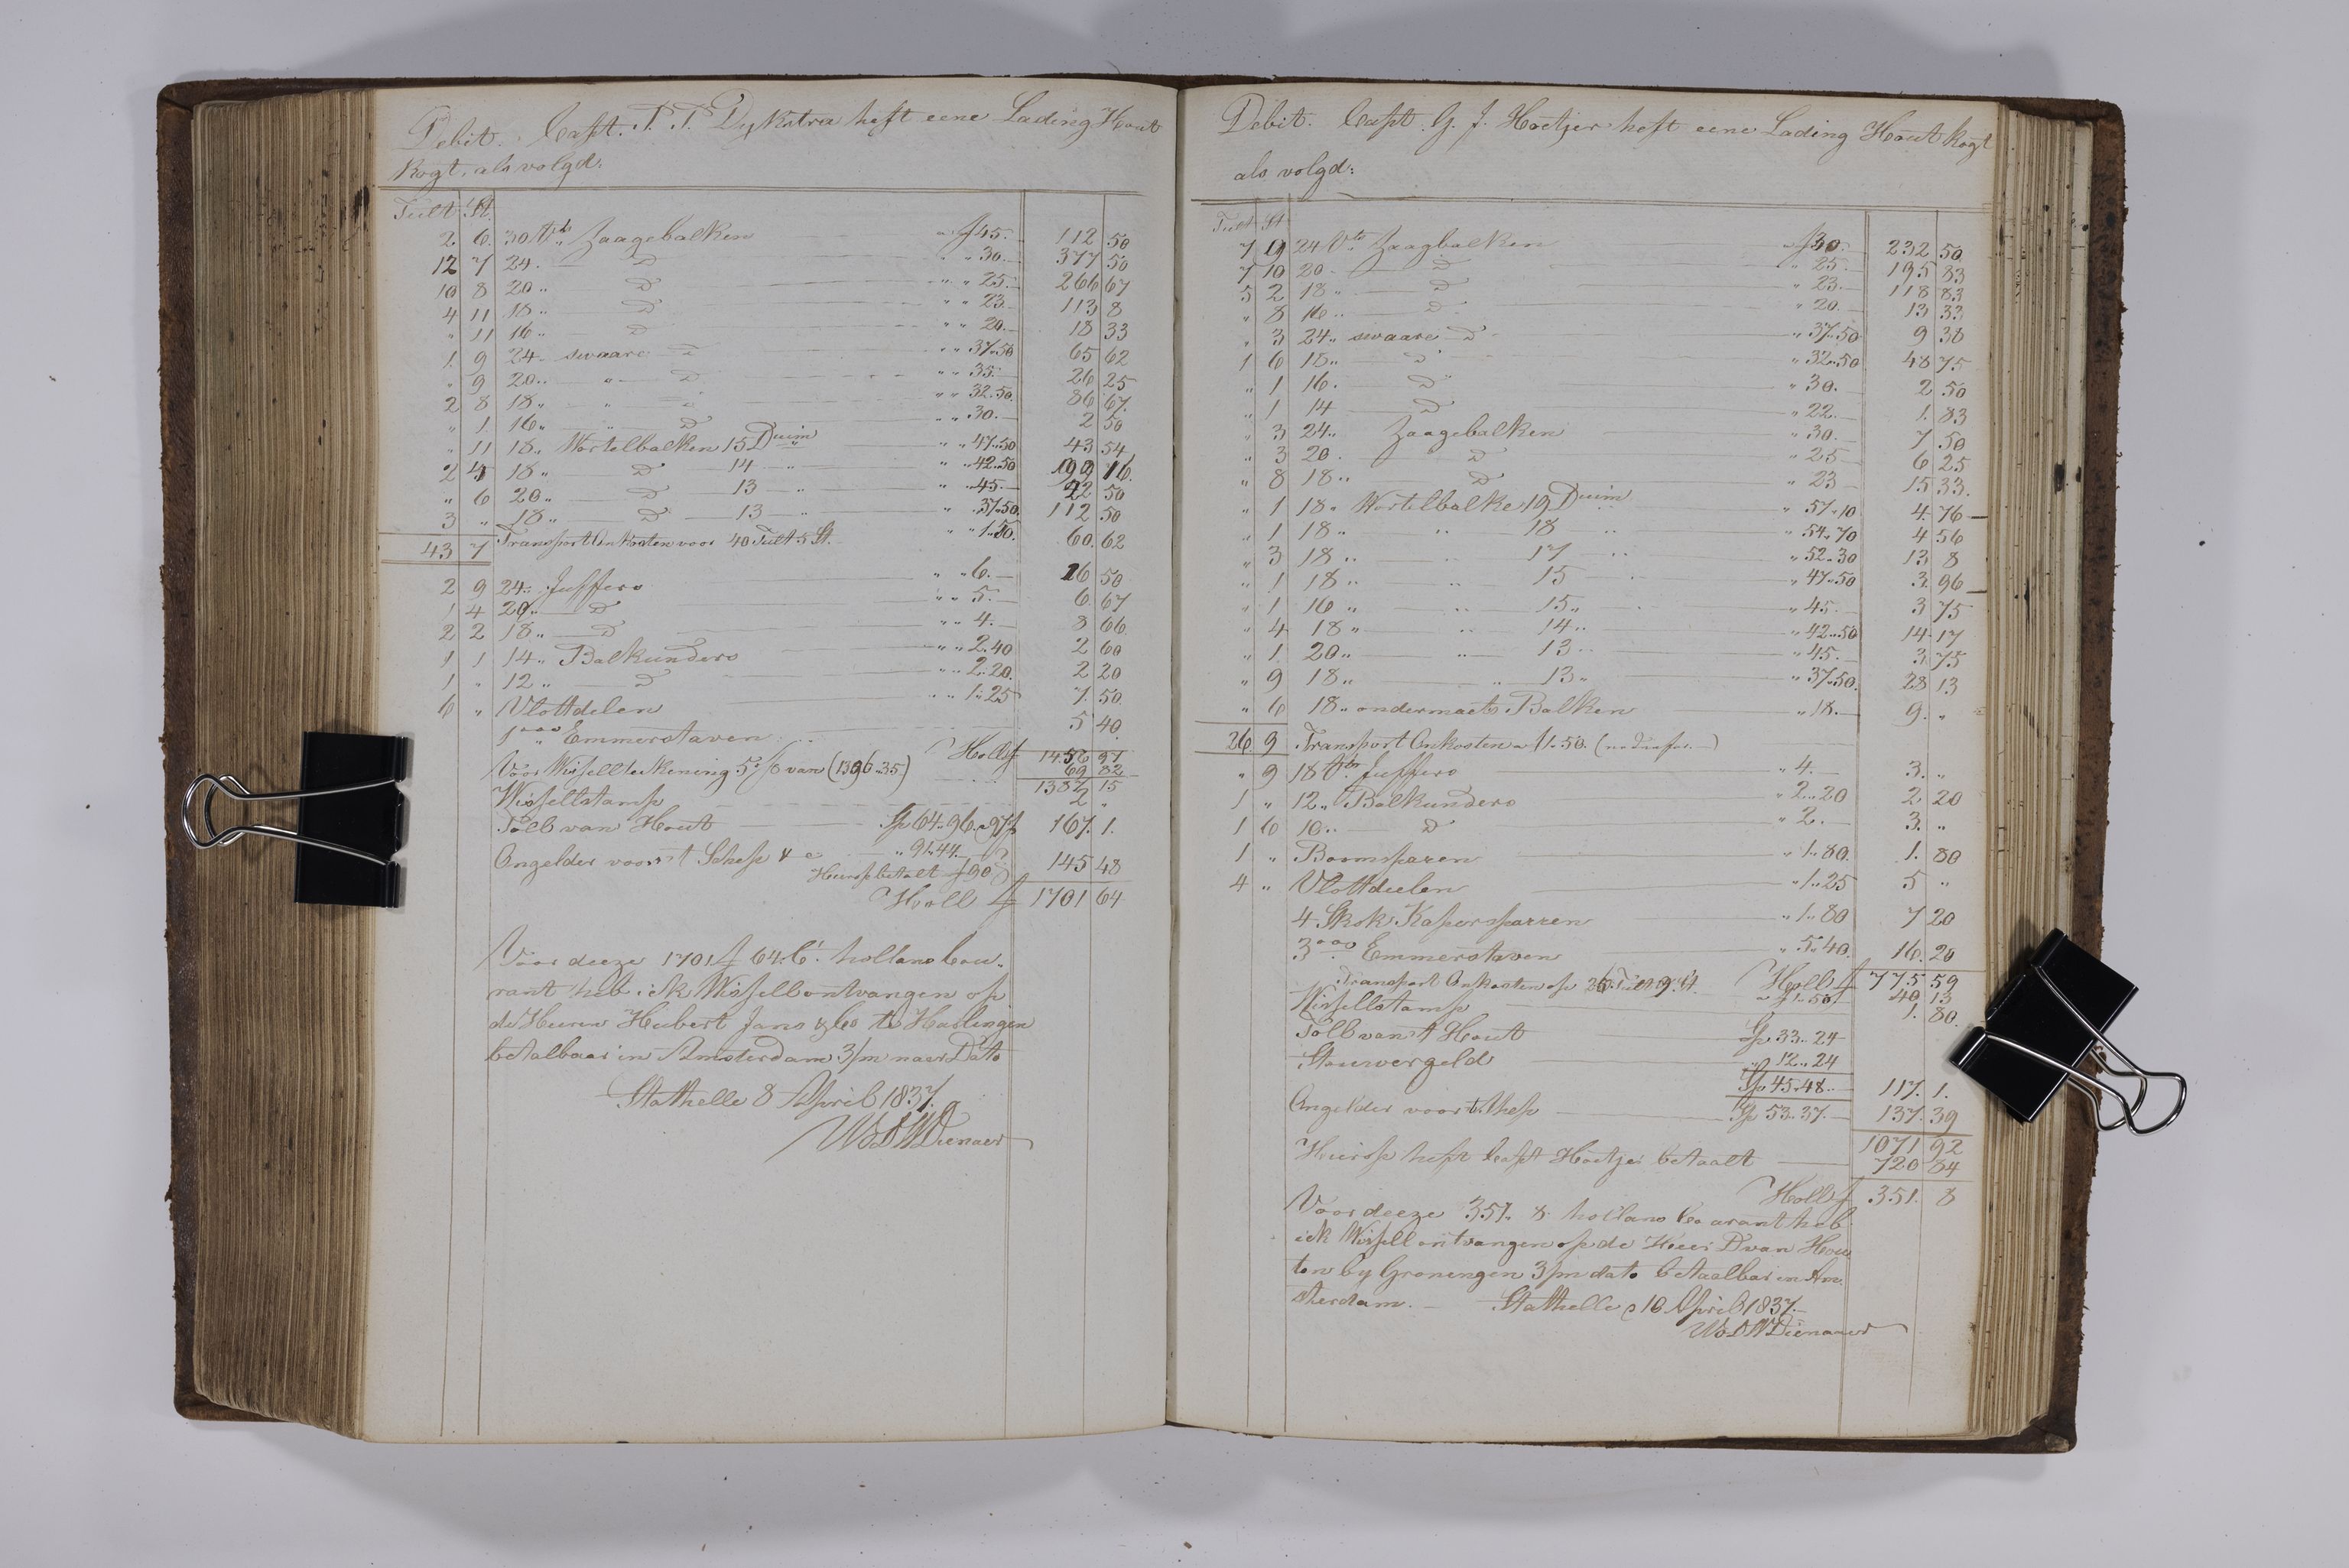 Debit. Capt. T. T. Dykstra heft eene Lading Hout
kogt, als volgd:
Tült St.
2 6. 30 Vt. Zaagebalken " f 45.— 112 50
12 7 24. — D " " 30.— 377 50
10 8 20 " D " " 25.— 266 67
4 11 18 " D " " 23.— 113 8
" 11 16 " D " " 20.— 18 33
1. 9 24 " swaare D " " 37.50 65 62
" 9 20 " " D " " 35.— 26 25
2 8 18 " " D " " 32.50. 86 67.
" 1. 16 " " D " " 30.— 2 50
" 11 18 " Wortelbalken 15 Duim " " 47.50 43 54
2 5 18 " D 14 — " " " 42.50 102 16.
" 6 20 " D 13 — " " " 45.— 22 50
3 " 18 " D 13 — " " 37.50. 112 50
43 7 Transport Onkosten voor 40 Tült 5 St. " 1.50. 60. 62
2 9 24 " Juffers " " 6.— 16 50
1 4 20 " — D " " 5.— 6. 67
2 2 18 " — D " " 4.— 8 66
1 1 14 " Balkunders " " 2.40 2 60
1 " 12 " — D " " 2.20. 2 20
6 " Vlottdelen " " 1.25 7. 50.
1000 " Emmerstaven 5 40.
Hollsf 1452 97
Voor Wissellteckening 5 % van (1396.35) 69 82
1382 15
Wissellstamp 2 "
Toll van Hout Sp 64.96. a 97f 167. 1.
Ongelder voor 't Schep & c " 91.44.
Hiersp betalt f 90 145 48
Holl f 1701 64
Voor deeze 1701 f 64. C. hollans Cou-
rant heb ick Wissell ontvangen op
de Heeren Hubert Jans & Co te Harlingen
betalbaar in Amsterdam 3/m naer Dato
Stathelle 8 April 1837.
Dienaer
Debit. Capt. G. J. Hoetjer heft eene Lading Hout kogt
als volgd:
Tült St
7 9 24 Vt. Zaagbalken " f 30.— 232 50.
7 10 20. — D " 25.— 195 83
5 2 18 " D " 23.— 118 83
" 8 16 " D " 20.— 13 33
" 3 24 " swaare D " 37.50 9 38
1 6 18 " D " 32.50 48 75
" 1 16. D " 30.— 2 50
" 1 14 D " 22.— 1. 83
" 3 24 " Zaagebalken " 30.— 7 50
" 3 20. D " 25 — 6 25
" 8 18 " D " 23 — 15 33.
" 1 18 " Wortelbalke 19 Duim " 57.10 4. 76
" 1 18 " " 18 " " 54.70 4 56
" 3 18 " " 17 " " 52.30 13 8
" 1 18 " " 15 " " 47.50 3. 96
" 1 16 " " 15 " " " 45.— 3 75
" 4 18 " " 14 " " 42.50 14. 17
" 1. 20 " " 13 " " 45.— 3. 75
" 9 18 " " 13 " " 37.50. 28 13
" 6 18 " ondermaets Balken " 18.— 9. "
26. 9 Transport Onkosten a f 1.50.
" 9 18 Vt. Juffers " 4.— 3. "
1 " 12 " Balkunders " 2.20 2 20
1 6 10 " — D " 2.— 3. "
1 " Boomsparen " 1.80. 1. 80
4 " Vlottdeelen " 1.25 5 "
4. Skok Kapersparren " 1.80 7 20
3000 Emmerstaven " 5.40. 16. 20
Holls f 775 59
Transport Onkosten op 26 Tült 9 St. a f 1.50 40 13
Wissellstamp 1. 80.
Toll van 't Hout Sp 33.24
Stouvergeld " 12.24
Sp 45.48.— 117. 1.
Ongelder voor 't Schep Sp 53.37.— 137. 39
1071 92
Hiersp heft Capt Hoetjer betaalt 720 84
Holls f 351. 8
Voor deeze 351. 8. hollans Courant heb
ick Wissell ontvangen op de Heer D van Hou
ten by Groningen 3/m dato betaalbar in Am
sterdam. — Stathelle 16 April 1837.—
Dienaaer